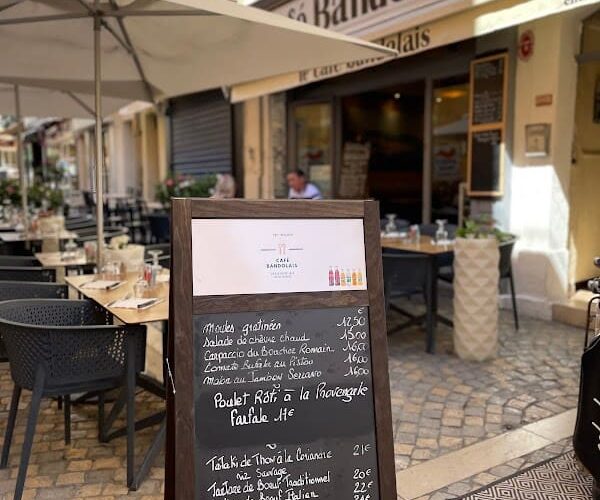 Café Bando
le Café Bandolais
CAFÉ
BANDOLAIS
€
Moules gratinées 12,50
Salade de chèvre chaud 15,00
Carpaccio du Boucher Romain 16,00
Buffala au Pistou 16,00
au Jambon Serrano 16,00
Poulet Rôti à la Provençale
farfale 11€
Tataki de Thon à la
riz Sauvage 21€
Tartare de Boeuf Traditionnel 20€
de Boeuf Italien 22€